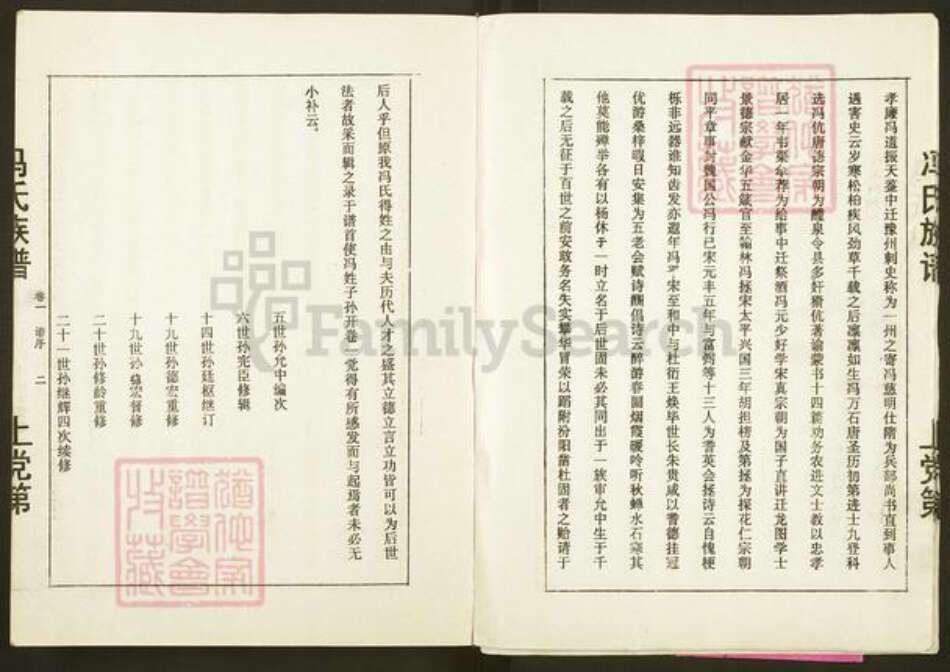 冯氏族谱
上党第
孝廉冯道振天鉴中迁豫州刺史称为一州之寄冯慈明仕隋为兵部尚书直到事人
遇害史云岁寒松柏疾风劲草千载之后凛凛如生冯万石唐圣历初第进士九登科
选冯伉唐德宗朝为醴泉令县多奸猾伉著谕蒙书十四篇劝务农进文士教以忠孝
居一年韦渠牟荐为给事中迁祭酒冯元少好学宋真宗朝为国子直讲迁龙图学士
景德宗献金华五箴官至翰林冯拯宋太平兴国三年胡担榜及第拯为探花仁宗朝
同平章事封魏国公冯行已宋元丰五年与富弼等十三人为耆英会拯诗云自愧梗
栎非远器谁知齿发亦遐年冯 宋至和中与杜衍王焕毕世长朱贵咸以耆德挂冠
优游桑梓暇日安集为五老会赋诗酬倡诗云醉游春圃烟霞暖吟听秋蝉水石寒其
他莫能殚举各有以杨休于一时立名于后世固未必其同出于一族审允中生于千
载之后无征于百世之前安敢务名失实攀华冒荣以蹈附汾阳凿杜固者之贻诮于
后人乎但原我冯氏得姓之由与夫历代人才之盛其立德立言立功皆可以为后世
法者故采而辑之录于谱首使冯姓子孙开卷一觉得有所感发而与起焉者未必无
小补云。
五世孙允中编次
六世孙宪臣修辑
十四世孙廷枢继订
十九世孙德宏重修
十九世孙 宏督修
二十世孙修龄重修
二十一世孙继辉四次续修
冯氏族谱
卷一 谱序 二
上党第
猶他家譜學會收藏
猶他家譜學會收藏
FamilySearch